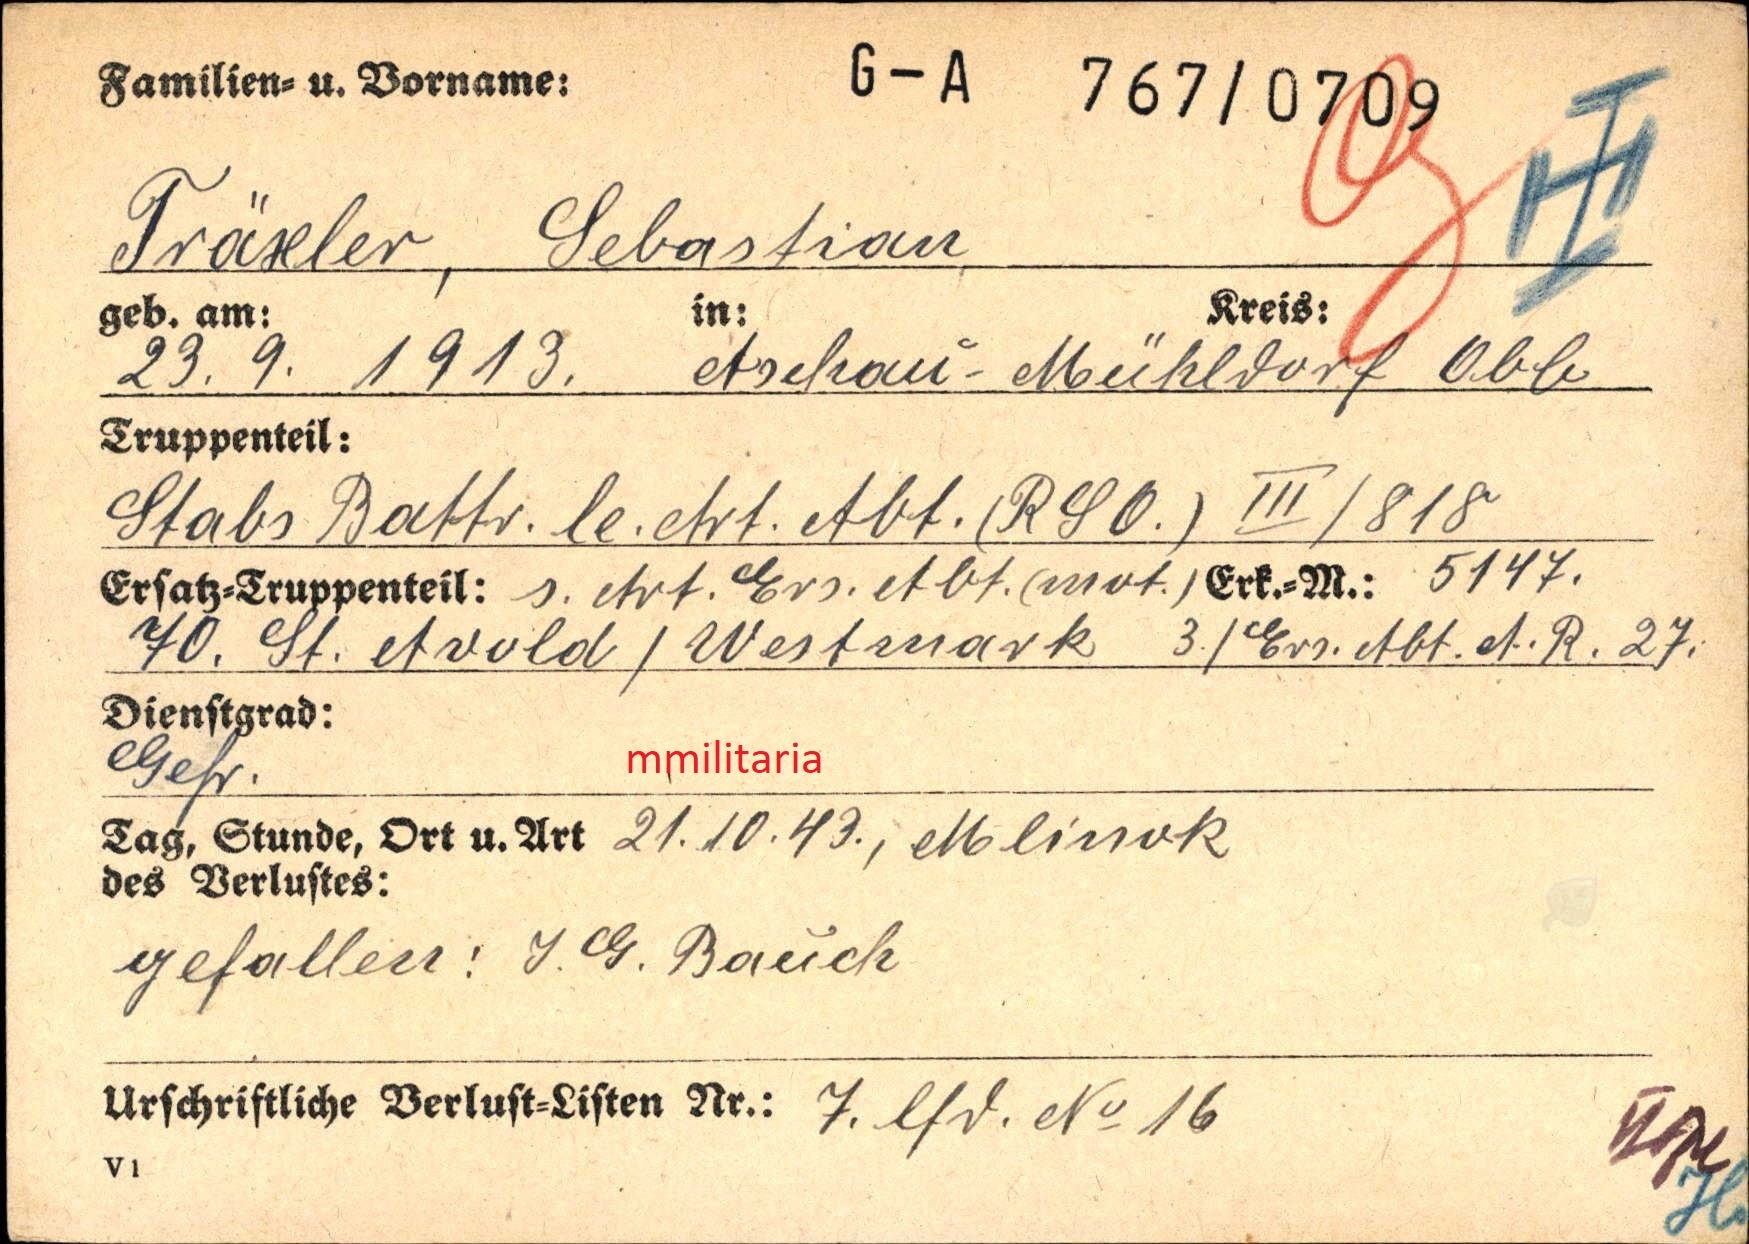 Familien- u. Vorname: G-A 767/0709
Träxler, Sebastian
geb. am: in: Kreis:
23. 9. 1913. Aschau - Mühldorf Obb
Truppenteil:
Stabs Battr. le. Art. Abt. (RSO.) III / 818
Ersatz-Truppenteil: s. Art. Ers. Abt. (mot.) Erk.-M.: 5147.
70. St. Avold / Westmark 3./Ers. Abt. A. R. 27.
Dienstgrad:
Gefr.
mmilitaria
Tag, Stunde, Ort u. Art 21.10.43., Mlinok
des Verlustes:
gefallen: J. G. Bauch
Urschriftliche Verlust-Listen Nr.: 7. lfd. No 16
V 1